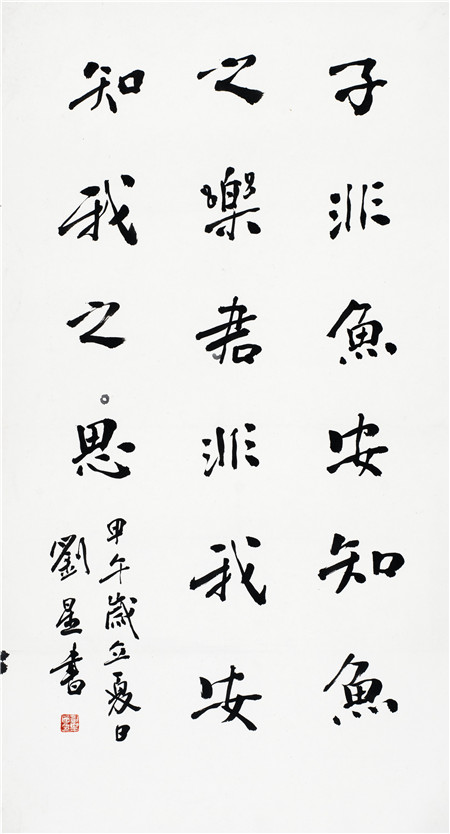 子非魚安知魚
之樂君非我安
知我之思
甲午歲立夏日
劉星書